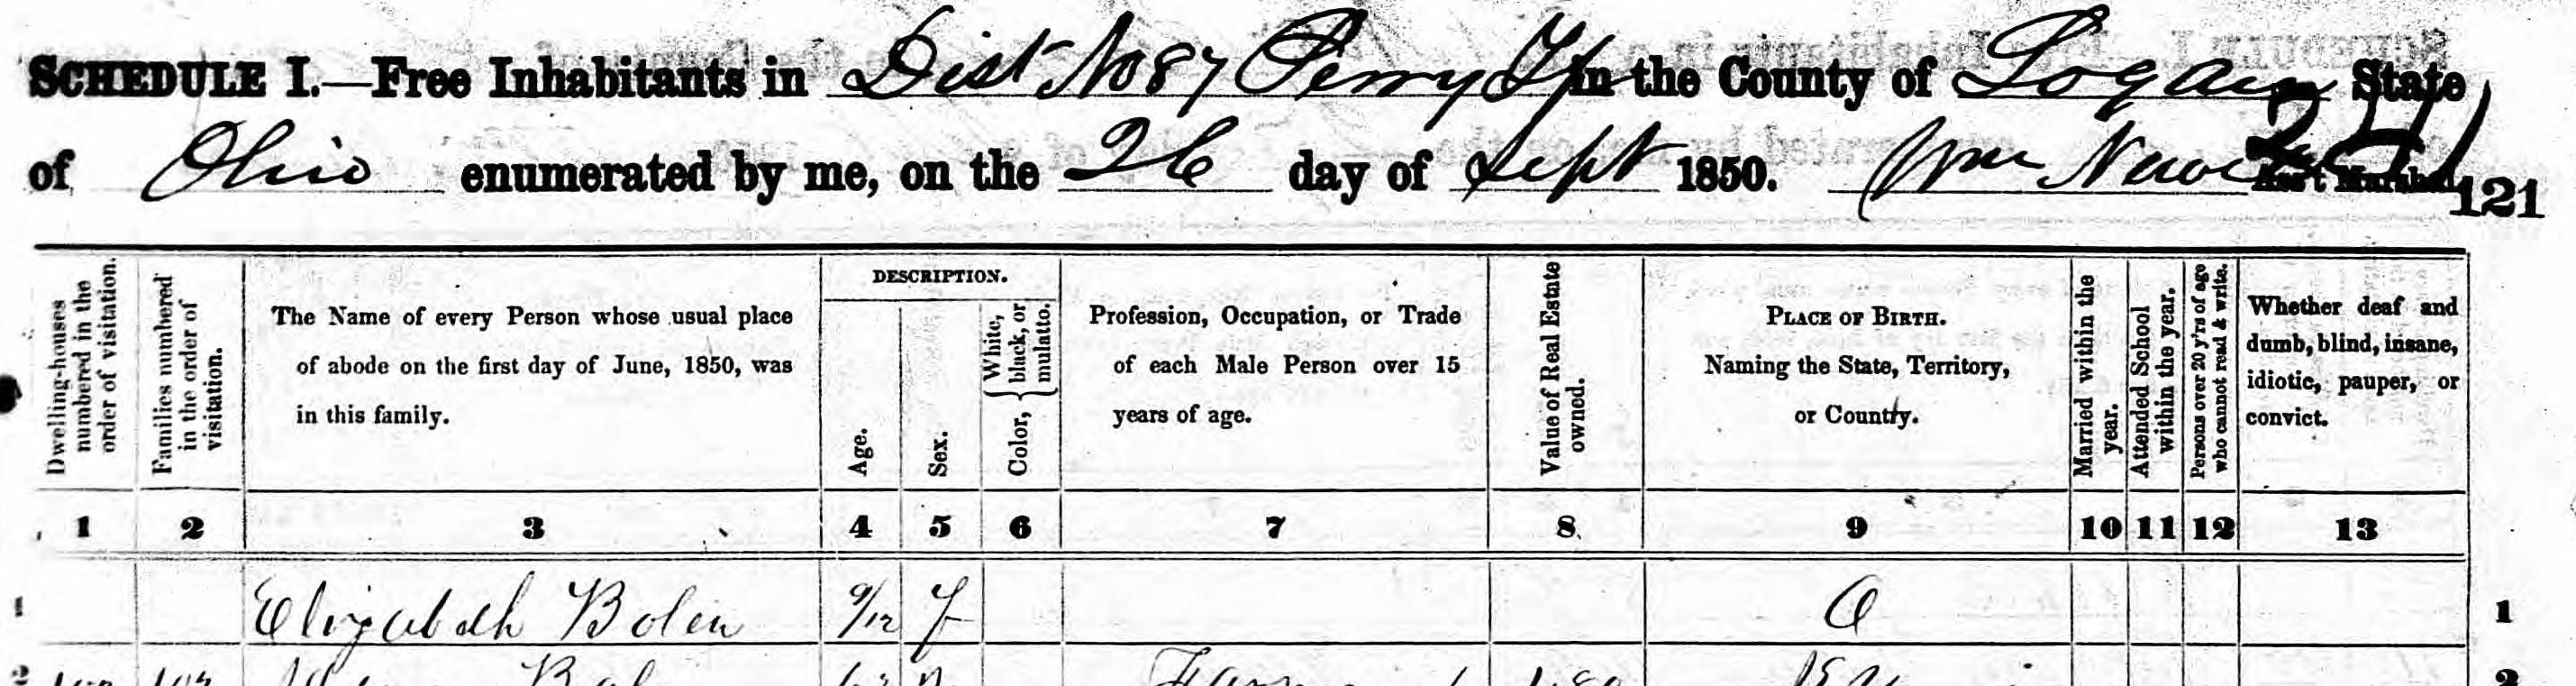 SCHEDULE I.—Free Inhabitants in Dist No 87 Perry Tp in the County of Logan State
of Ohio enumerated by me, on the 26 day of Sept 1850. Wm Ass't Marshal
241
121
Dwelling-houses numbered in the order of visitation.
Families numbered in the order of visitation.
The Name of every Person whose usual place
of abode on the first day of June, 1850, was
in this family.
DESCRIPTION.
Age.
Sex.
Color, { White, black, or mulatto.
Profession, Occupation, or Trade
of each Male Person over 15
years of age.
Value of Real Estate owned.
PLACE OF BIRTH.
Naming the State, Territory,
or Country.
Married within the year.
Attended School within the year.
Persons over 20 y'rs of age who cannot read & write.
Whether deaf and
dumb, blind, insane,
idiotic, pauper, or
convict.
1 2 3 4 5 6 7 8 9 10 11 12 13
1 Elizabeth Bolen 9/12 f O 1
2 2